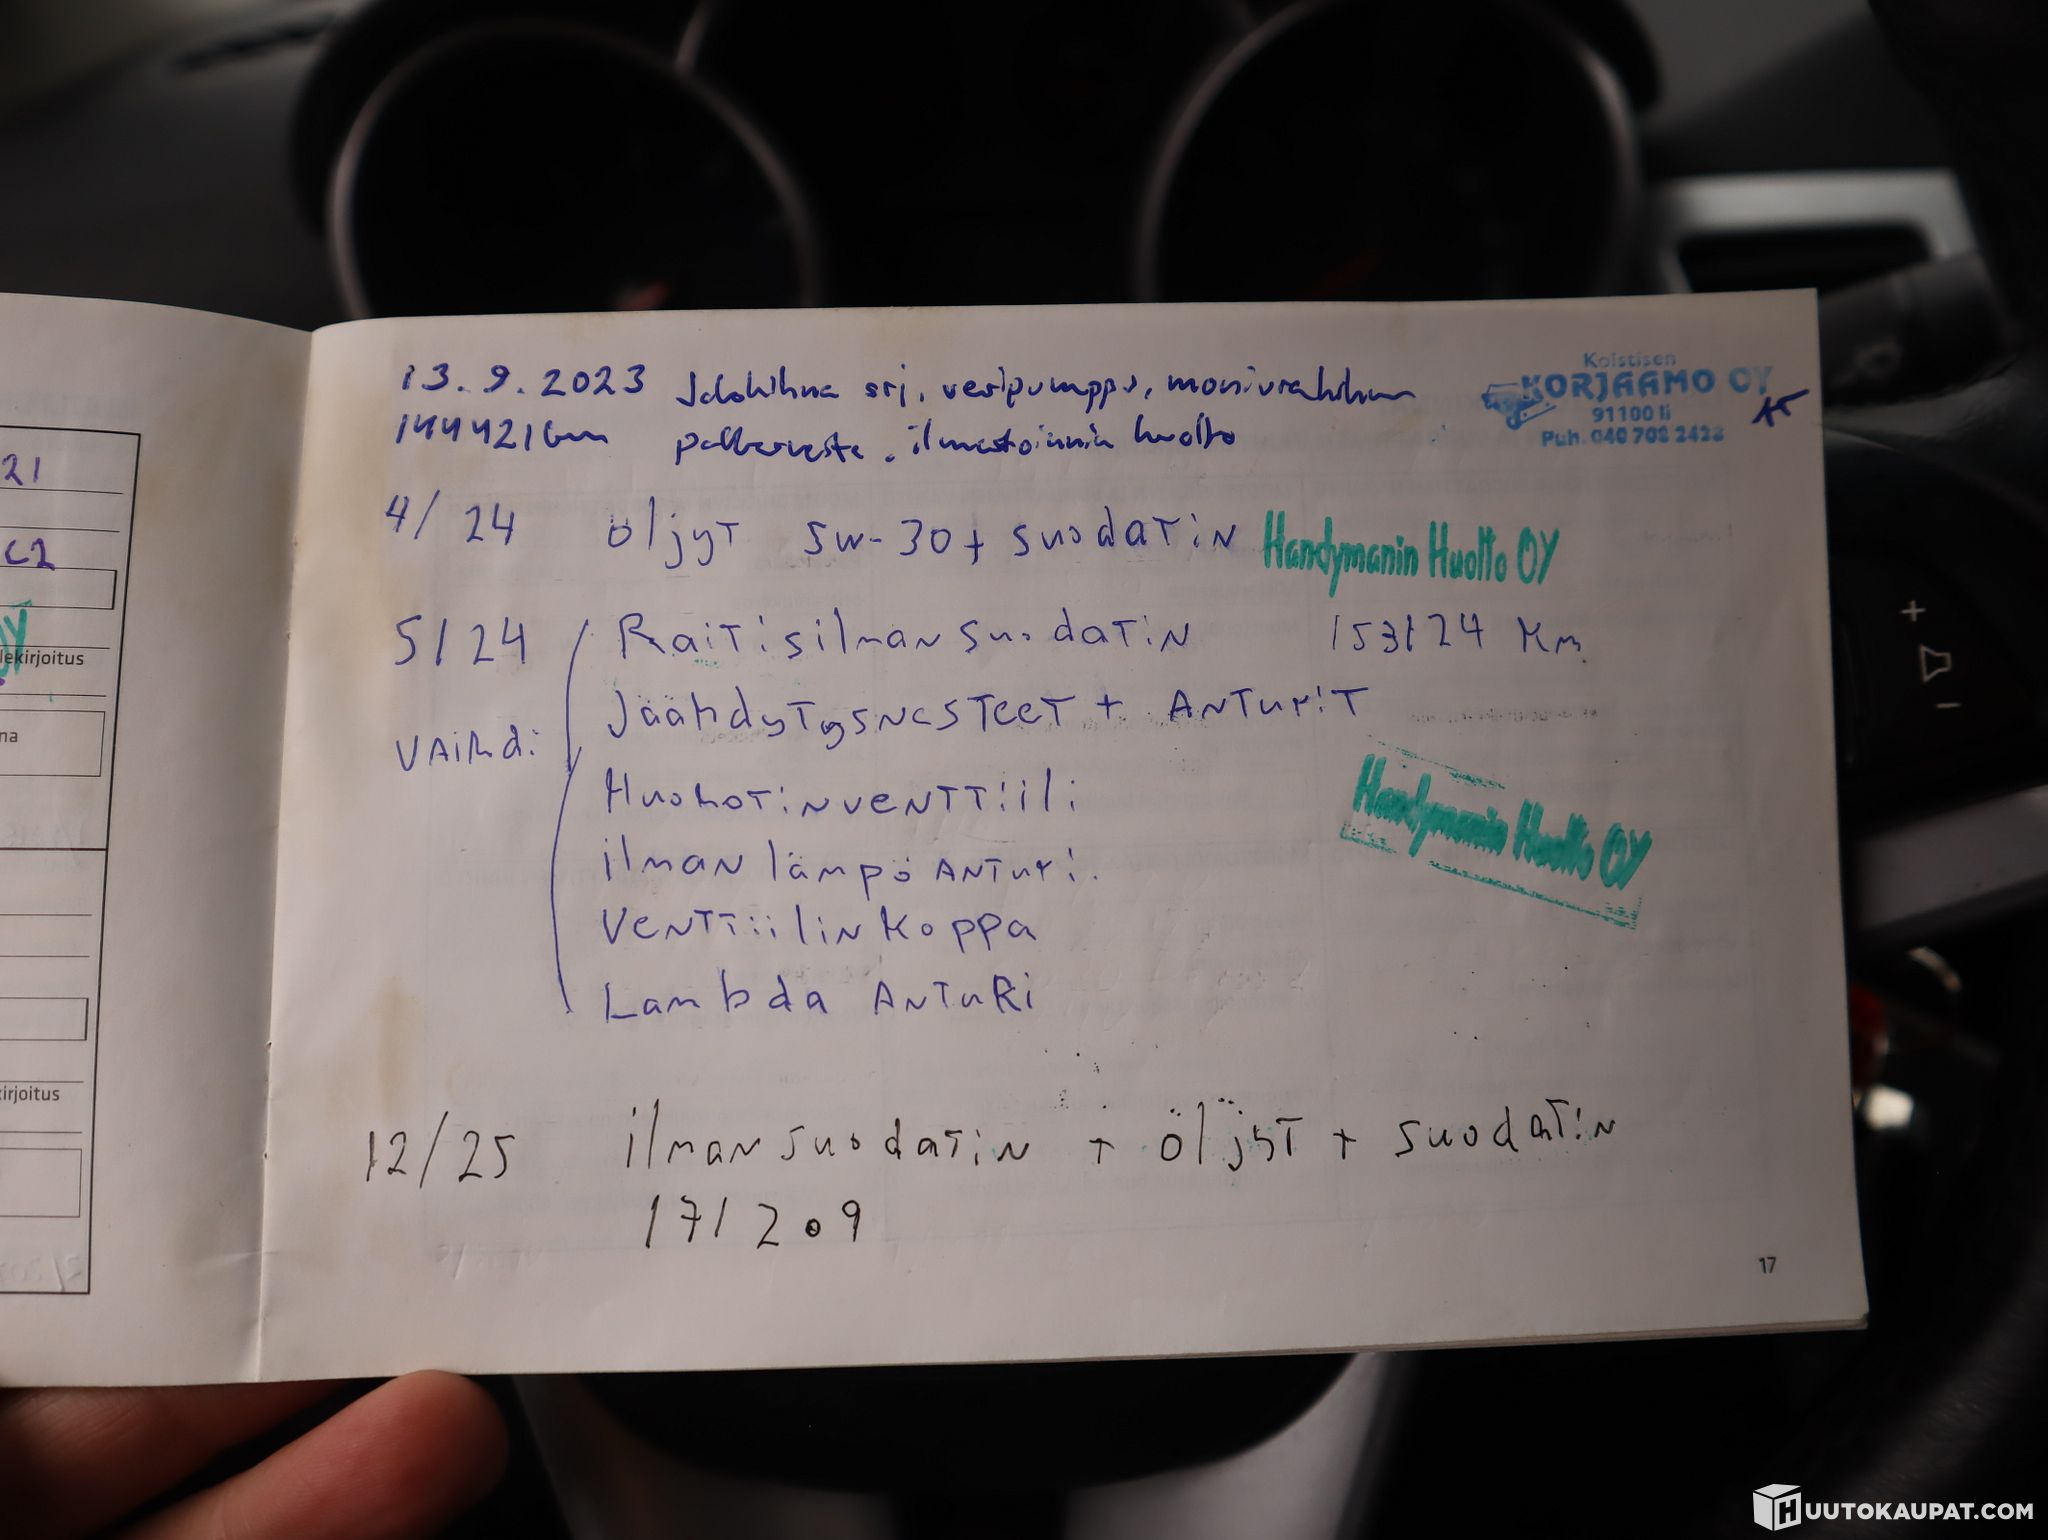 21
C2
lekirjoitus
na
kirjoitus
13.9.2023 Jakohihna srj, vesipumppu, moniurahihna
144421km ilmastoinnin huolto
Koistisen
KORJAAMO OY
91100 Ii
Puh. 040 708 2428
4/24 öljyt 5w-30 + suodatin Handymanin Huolto OY
5/24 Raitisilmansuodatin 153124 Km
Jäähdytysnesteet + Anturit
vaihd:
Huohotinventtiili
Handymanin Huolto OY
ilman lämpö Anturi.
Venttiilinkoppa
Lambda Anturi
12/25 ilmansuodatin + öljyt + suodatin
171209
17
+
-
HUUTOKAUPAT.COM